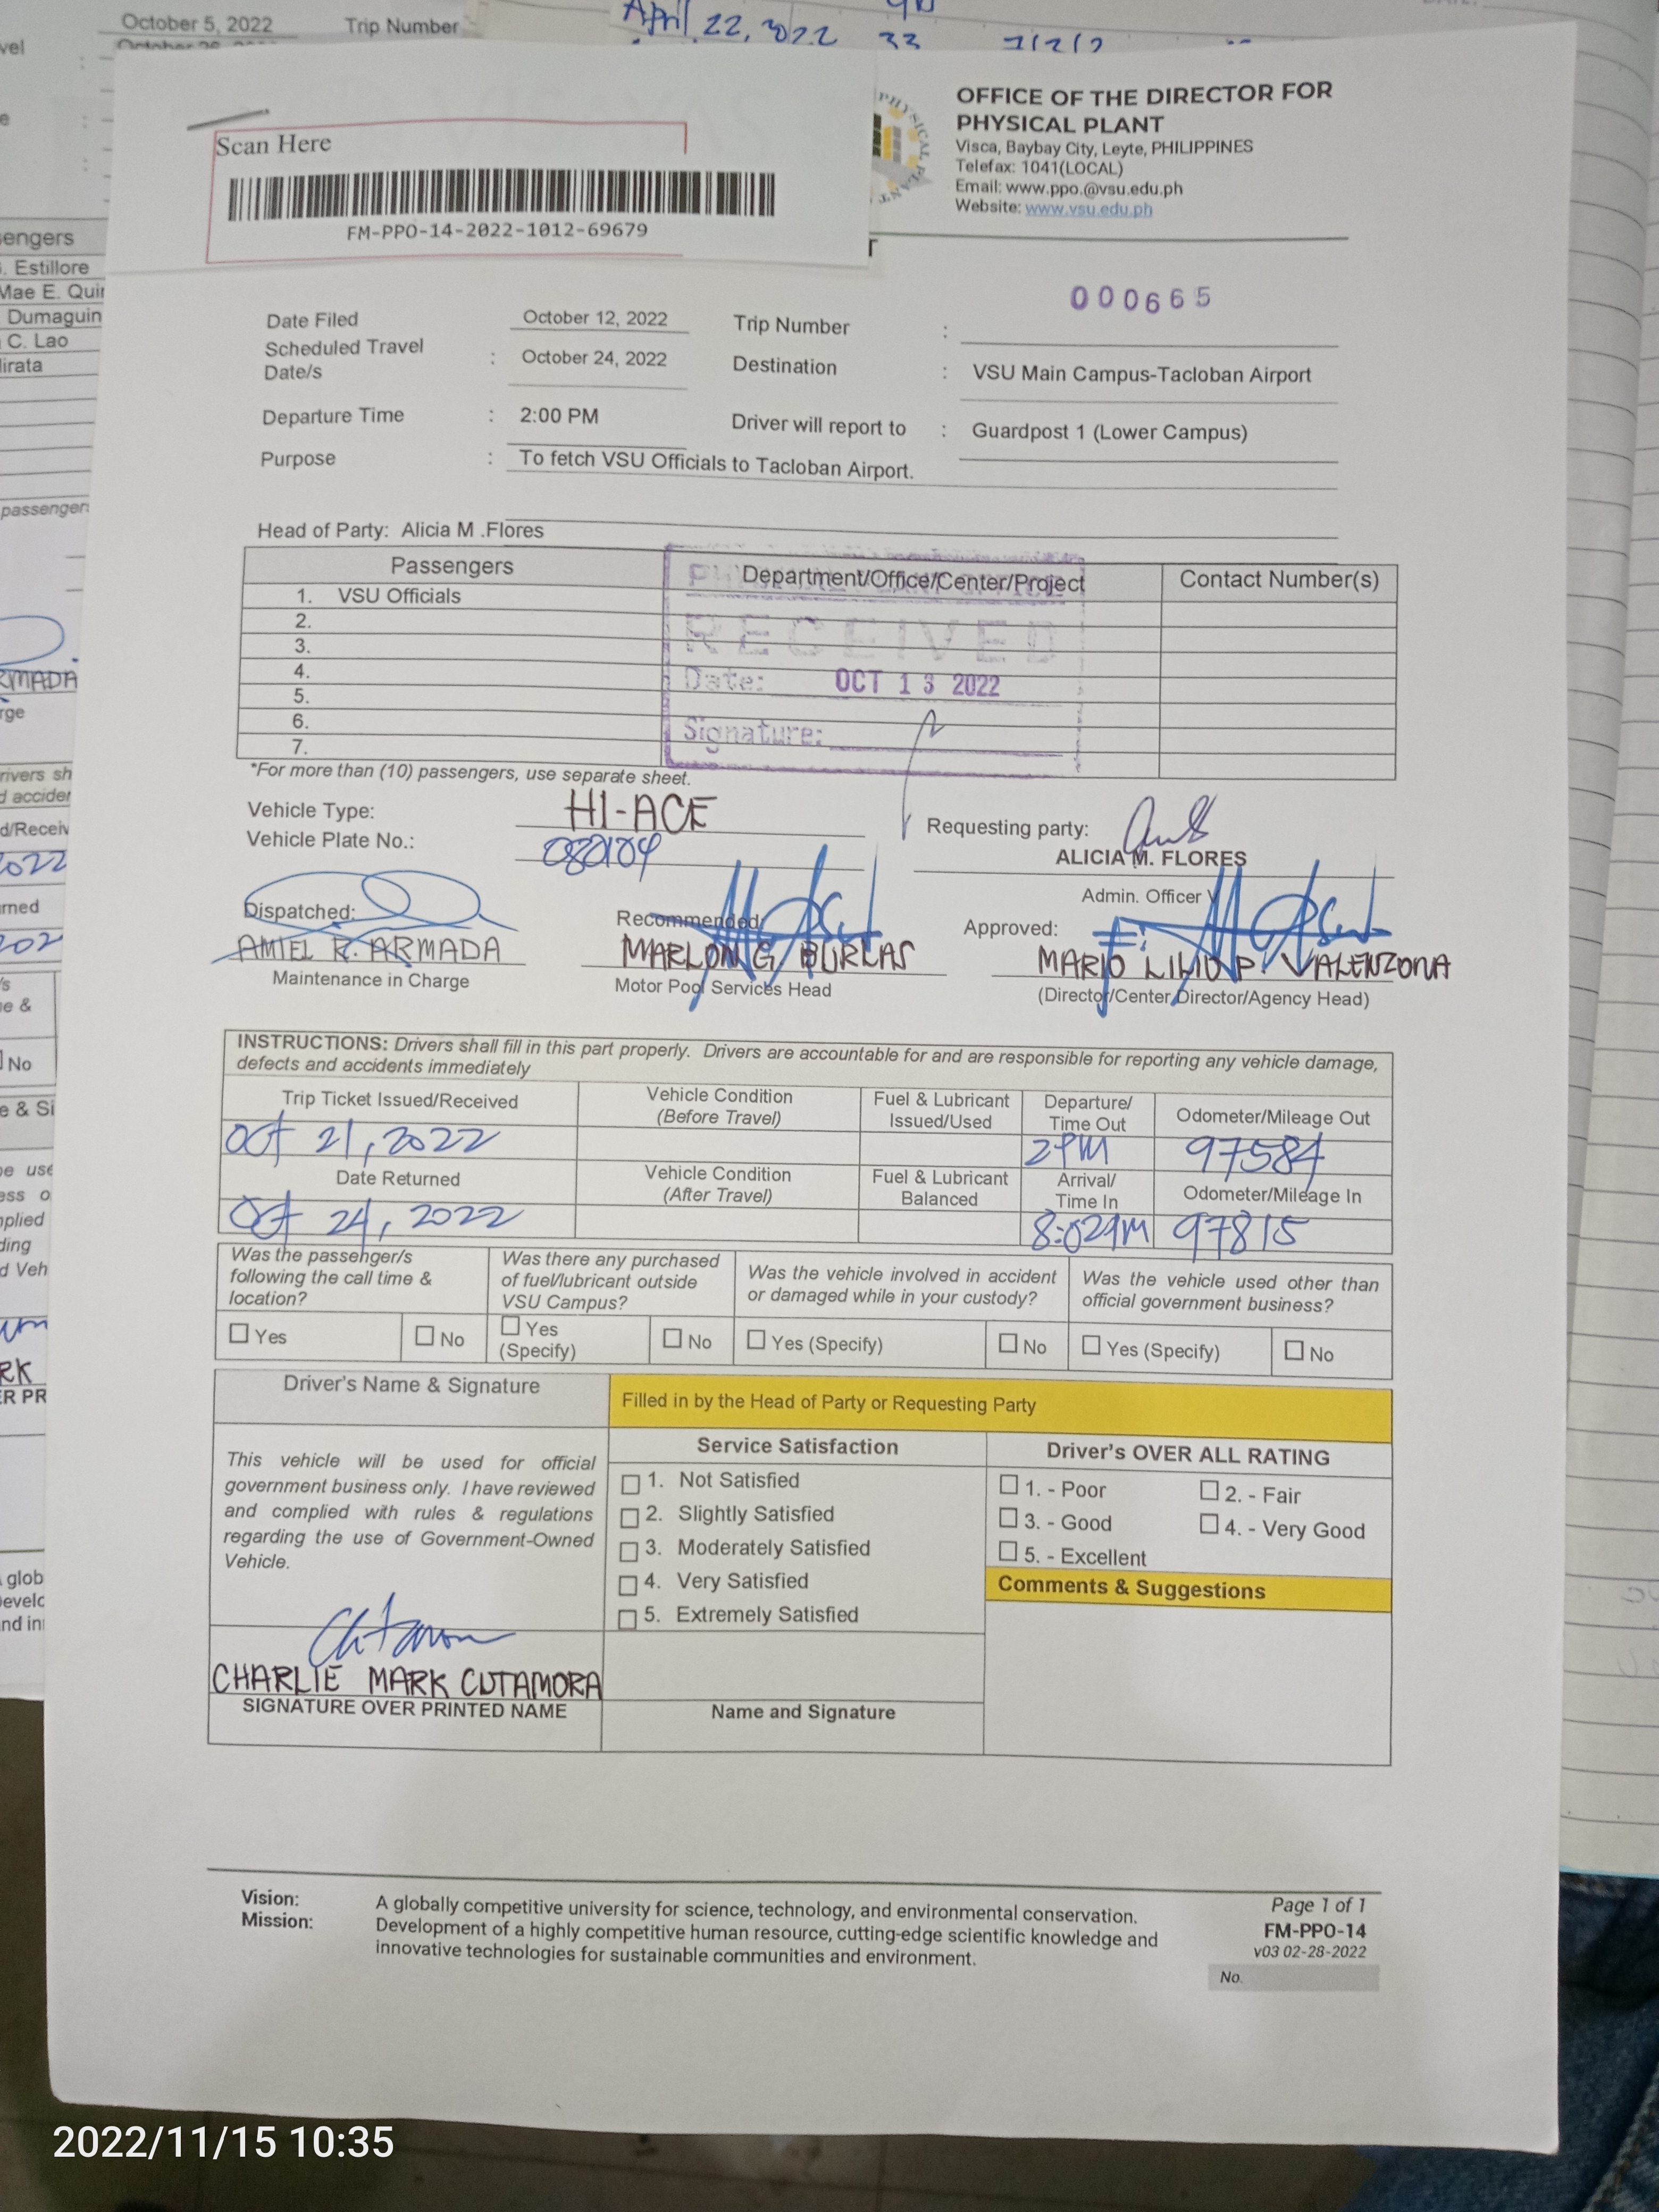 October 5, 2022 Trip Number
April 22, 2022 33
Scan Here
FM-PPO-14-2022-1012-69679
OFFICE OF THE DIRECTOR FOR
PHYSICAL PLANT
Visca, Baybay City, Leyte, PHILIPPINES
Telefax: 1041(LOCAL)
Email: www.ppo.@vsu.edu.ph
Website: www.vsu.edu.ph
000665
Date Filed October 12, 2022 Trip Number :
Scheduled Travel Date/s : October 24, 2022 Destination : VSU Main Campus-Tacloban Airport
Departure Time : 2:00 PM Driver will report to : Guardpost 1 (Lower Campus)
Purpose : To fetch VSU Officials to Tacloban Airport.
Head of Party: Alicia M .Flores
Passengers Department/Office/Center/Project Contact Number(s)
1. VSU Officials
2.
3.
4.
5.
6.
7.
RECEIVED
Date: OCT 13 2022
Signature:
*For more than (10) passengers, use separate sheet.
Vehicle Type: HI-ACE
Vehicle Plate No.:
Requesting party:
ALICIA M. FLORES
Admin. Officer V
Dispatched: Recommended: Approved:
AMIEL R. ARMADA MARLON G. BURLAS MARIO LILIO P. VALENZONA
Maintenance in Charge Motor Pool Services Head (Director/Center Director/Agency Head)
INSTRUCTIONS: Drivers shall fill in this part properly. Drivers are accountable for and are responsible for reporting any vehicle damage,
defects and accidents immediately
Trip Ticket Issued/Received Vehicle Condition (Before Travel) Fuel & Lubricant Issued/Used Departure/ Time Out Odometer/Mileage Out
Oct 21, 2022 2PM 97584
Date Returned Vehicle Condition (After Travel) Fuel & Lubricant Balanced Arrival/ Time In Odometer/Mileage In
Oct 24, 2022 97815
Was the passenger/s following the call time & location?
Was there any purchased of fuel/lubricant outside VSU Campus?
Was the vehicle involved in accident or damaged while in your custody?
Was the vehicle used other than official government business?
Yes No Yes (Specify) No Yes (Specify) No Yes (Specify) No
Driver's Name & Signature
Filled in by the Head of Party or Requesting Party
This vehicle will be used for official
government business only. I have reviewed
and complied with rules & regulations
regarding the use of Government-Owned
Vehicle.
Service Satisfaction
1. Not Satisfied
2. Slightly Satisfied
3. Moderately Satisfied
4. Very Satisfied
5. Extremely Satisfied
Driver's OVER ALL RATING
1. - Poor 2. - Fair
3. - Good 4. - Very Good
5. - Excellent
Comments & Suggestions
CHARLIE MARK CUTAMORA
SIGNATURE OVER PRINTED NAME
Name and Signature
Vision: A globally competitive university for science, technology, and environmental conservation.
Mission: Development of a highly competitive human resource, cutting-edge scientific knowledge and
innovative technologies for sustainable communities and environment.
Page 1 of 1
FM-PPO-14
v03 02-28-2022
No.
2022/11/15 10:35